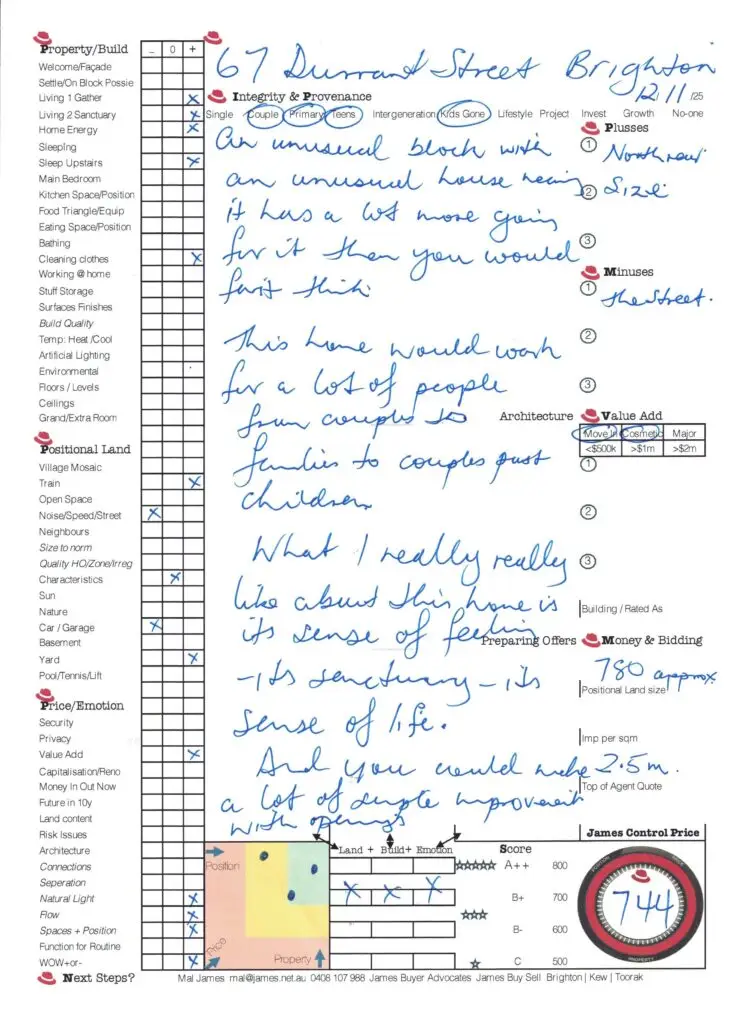 67 Durrant Street Brighton
12/11/25
Property/Build - 0 +
Welcome/Façade
Settle/On Block Possie
Living 1 Gather X
Living 2 Sanctuary X
Home Energy X
Sleeping
Sleep Upstairs X
Main Bedroom
Kitchen Space/Position
Food Triangle/Equip
Eating Space/Position
Bathing
Cleaning clothes X
Working @ home
Stuff Storage
Surfaces Finishes
Build Quality
Temp: Heat /Cool
Artificial Lighting
Environmental
Floors / Levels
Ceilings
Grand/Extra Room
Positional Land
Village Mosaic
Train X
Open Space
Noise/Speed/Street X
Neighbours
Size to norm
Quality HO/Zone/Irreg
Characteristics X
Sun
Nature
Car / Garage X
Basement
Yard X
Pool/Tennis/Lift
Price/Emotion
Security
Privacy
Value Add X
Capitalisation/Reno
Money In Out Now
Future in 10y
Land content
Risk Issues
Architecture
Connections
Seperation
Natural Light X
Flow X
Spaces + Position X
Function for Routine
WOW+or- X
Next Steps?
Integrity & Provenance
Single Couple Primary Teens Intergeneration Kids Gone Lifestyle Project Invest Growth No-one
An unusual block with
an unusual house
it has a lot more going
for it then you would
first think.
This home would work
for a lot of people
from couples to
families to couples past
children
What I really really
like about this home is
its sense of feeling
- its sanctuary - its
sense of life.
And you could make
a lot of simple improvement
with openings
Plusses
1 North rear
2 Size
3
Minuses
1 The Street.
2
3
Architecture Value Add
Move In Cosmetic Major
<$500k >$1m >$2m
1
2
3
Building / Rated As
Preparing Offers Money & Bidding
780 approx.
Positional Land size
Imp per sqm
2.5m.
Top of Agent Quote
James Control Price
POSITION
744
PROPERTY
Position
Price
Property
Land + Build+ Emotion
X X X
Score
A++ 800
B+ 700
B- 600
C 500
Mal James mal@james.net.au 0408 107 988 James Buyer Advocates James Buy Sell Brighton | Kew | Toorak